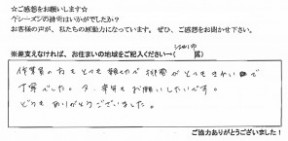 ☆ご感想をお願いします☆
今シーズンの紲市はいかがでしたか？
お客様の声が、私たちの原動力になっています。ぜひ、ご感想をお聞かせ下さい。
※差支えなければ、お住まいの地域をご記入ください→（
県）
作業員の方もとても
とてもきれいで
丁寧でした。
お願いしたいです。
どうもありがとうございました。
ご協力ありがとうございました！